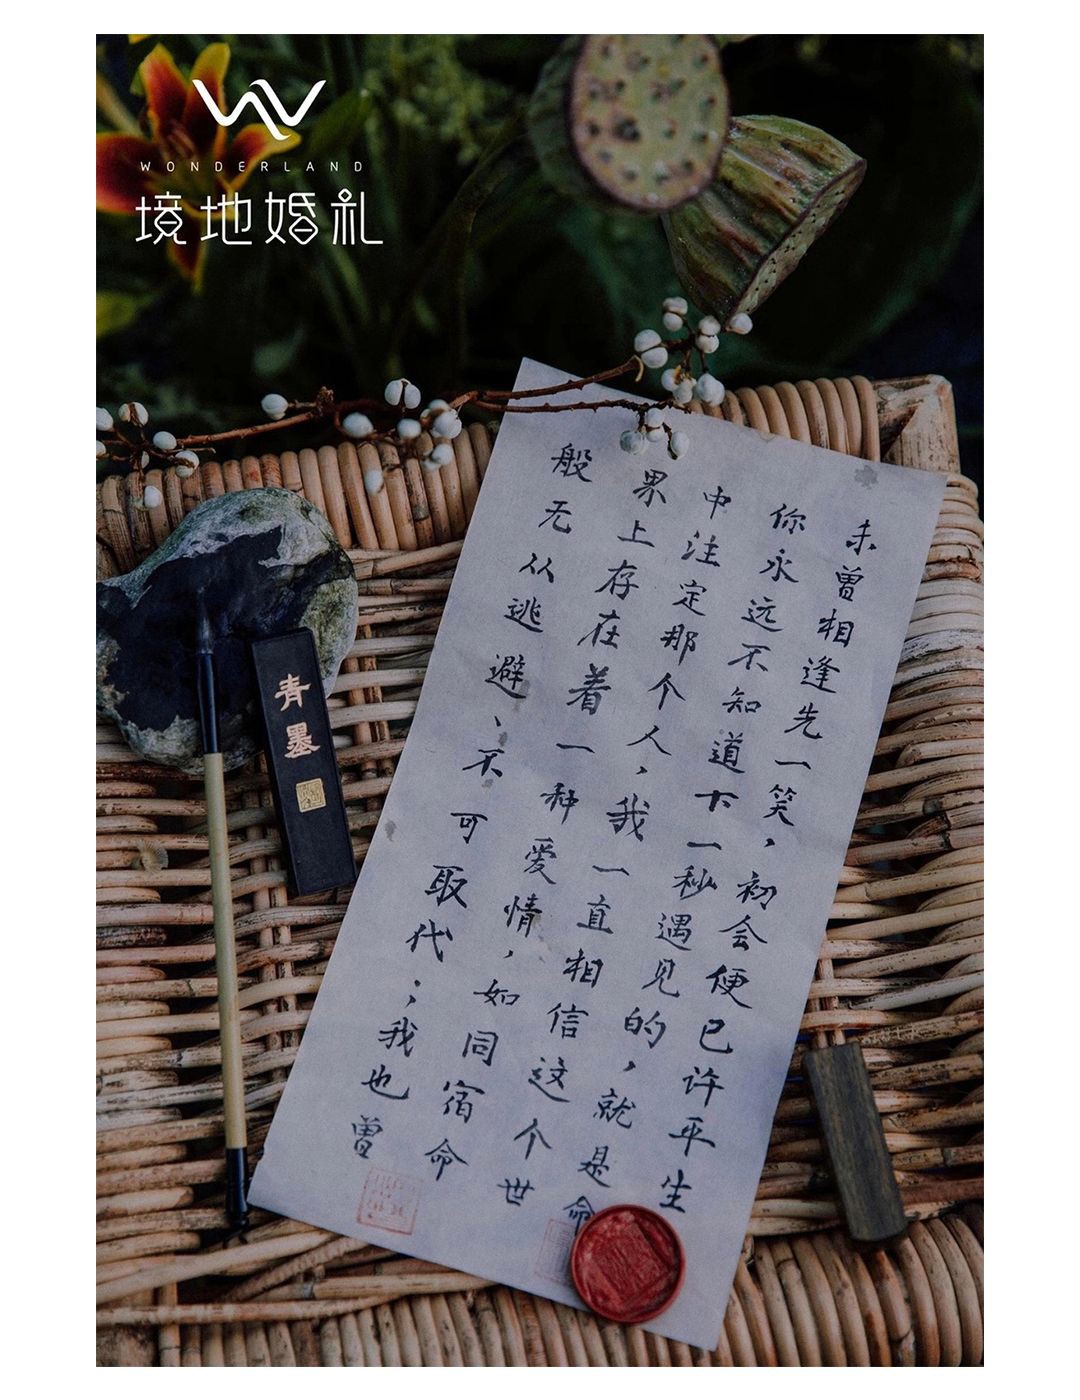 WONDERLAND
境地婚礼
未曾相逢先一笑，初会便已许平生
你永远不知道下一秒遇见的，就是命
中注定那个人，我一直相信这个世
界上存在着一种爱情，如同宿命
般无从逃避、不可取代；我也曾
青墨